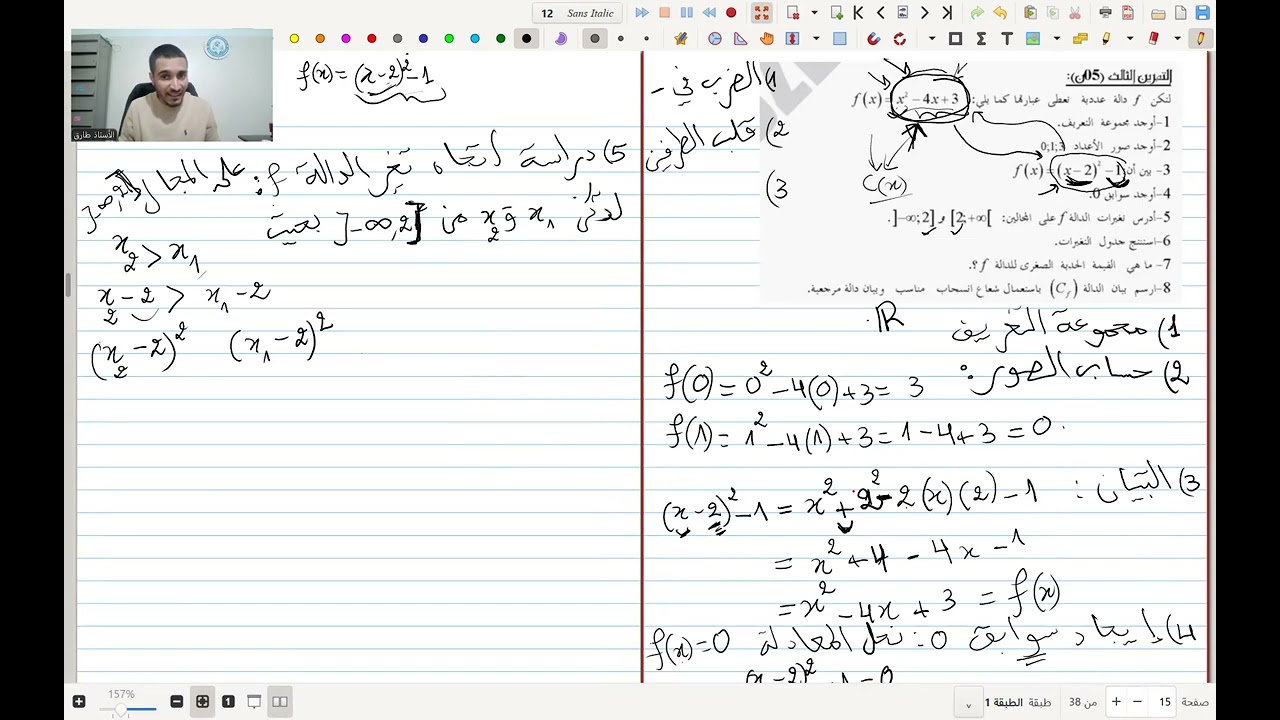 12 Sans Italic
الأستاذ طارق
التمرين الثالث (05ن):
لتكن f دالة عددية تعطى عبارتها كما يلي: f(x) = x² − 4x + 3
1-أوجد مجموعة التعريف.
2-أوجد صور الأعداد 0;1;3
3- بين أن f(x) = (x − 2)² − 1
4-أوجد سوابق 0.
5-أدرس تغيرات الدالة f على المجالين: [2;+∞[ و ]−∞;2].
6-استنتج جدول التغيرات.
7- ما هي القيمة الحدية الصغرى للدالة f ؟.
8-ارسم بيان الدالة (C_f) باستعمال شعاع انسحاب مناسب وبيان دالة مرجعية.
C(x)
1) الضرب في -
2) قلب الطرفين
3)
1) مجموعة التعريف ℝ.
2) حساب الصور:
f(0) = 0² − 4(0) + 3 = 3
f(1) = 1² − 4(1) + 3 = 1 − 4 + 3 = 0.
3) التبيان:
(x − 2)² − 1 = x² + 2² − 2(x)(2) − 1
= x² + 4 − 4x − 1
= x² − 4x + 3 = f(x)
4) إيجاد سوابق 0: نحل المعادلة f(x) = 0
(x − 2)² − 1 = 0
f(x) = (x − 2)² − 1
5) دراسة اتجاه تغير الدالة f: على المجال ]−∞,2]
لدينا x₁ و x₂ من ]−∞,2] بحيث
x₂ > x₁
x₂ − 2 > x₁ − 2
(x₂ − 2)² (x₁ − 2)²
157%
طبقة الطبقة 1
من 38
15
صفحة